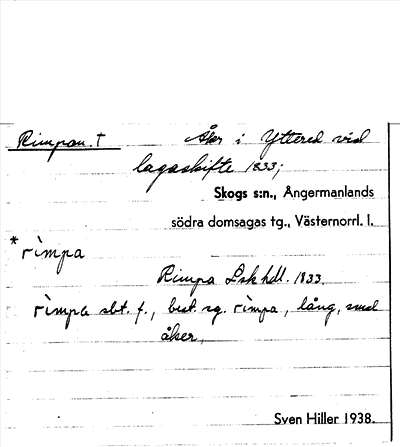 Rimpan. † Åker i Yttered vid
lagaskifte 1833;
Skogs s:n., Ångermanlands
södra domsagas tg., Västernorrl. l.
* rìmpa
Rimpa Lsk hdl. 1833.
rìmpa sbt. f., best. sg. rìmpa, lång, smal
åker,
Sven Hiller 1938.